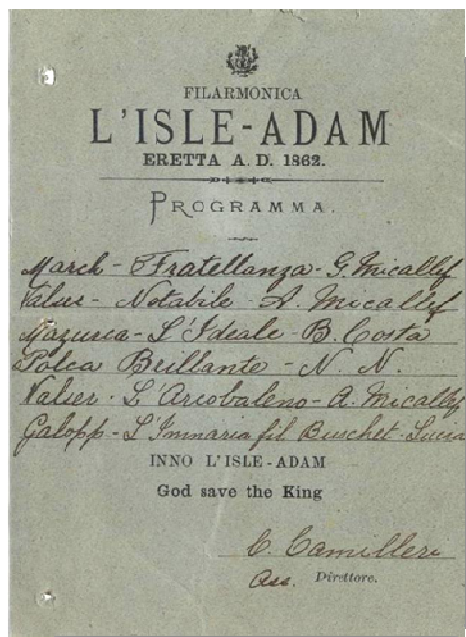 FILARMONICA
L'ISLE-ADAM
ERETTA A. D. 1862.
PROGRAMMA.
March - Fratellanza - G. Micallef
Valser - Notabile - A. Micallef
Mazurca - L'Ideale - B. Costa
Polca Brillante - N. N.
Valser - L'Arcobaleno - A. Micallef
Galopp - L'Immaria fil Buschet -
INNO L'ISLE-ADAM
God save the King
C. Camilleri
Ass. Direttore.